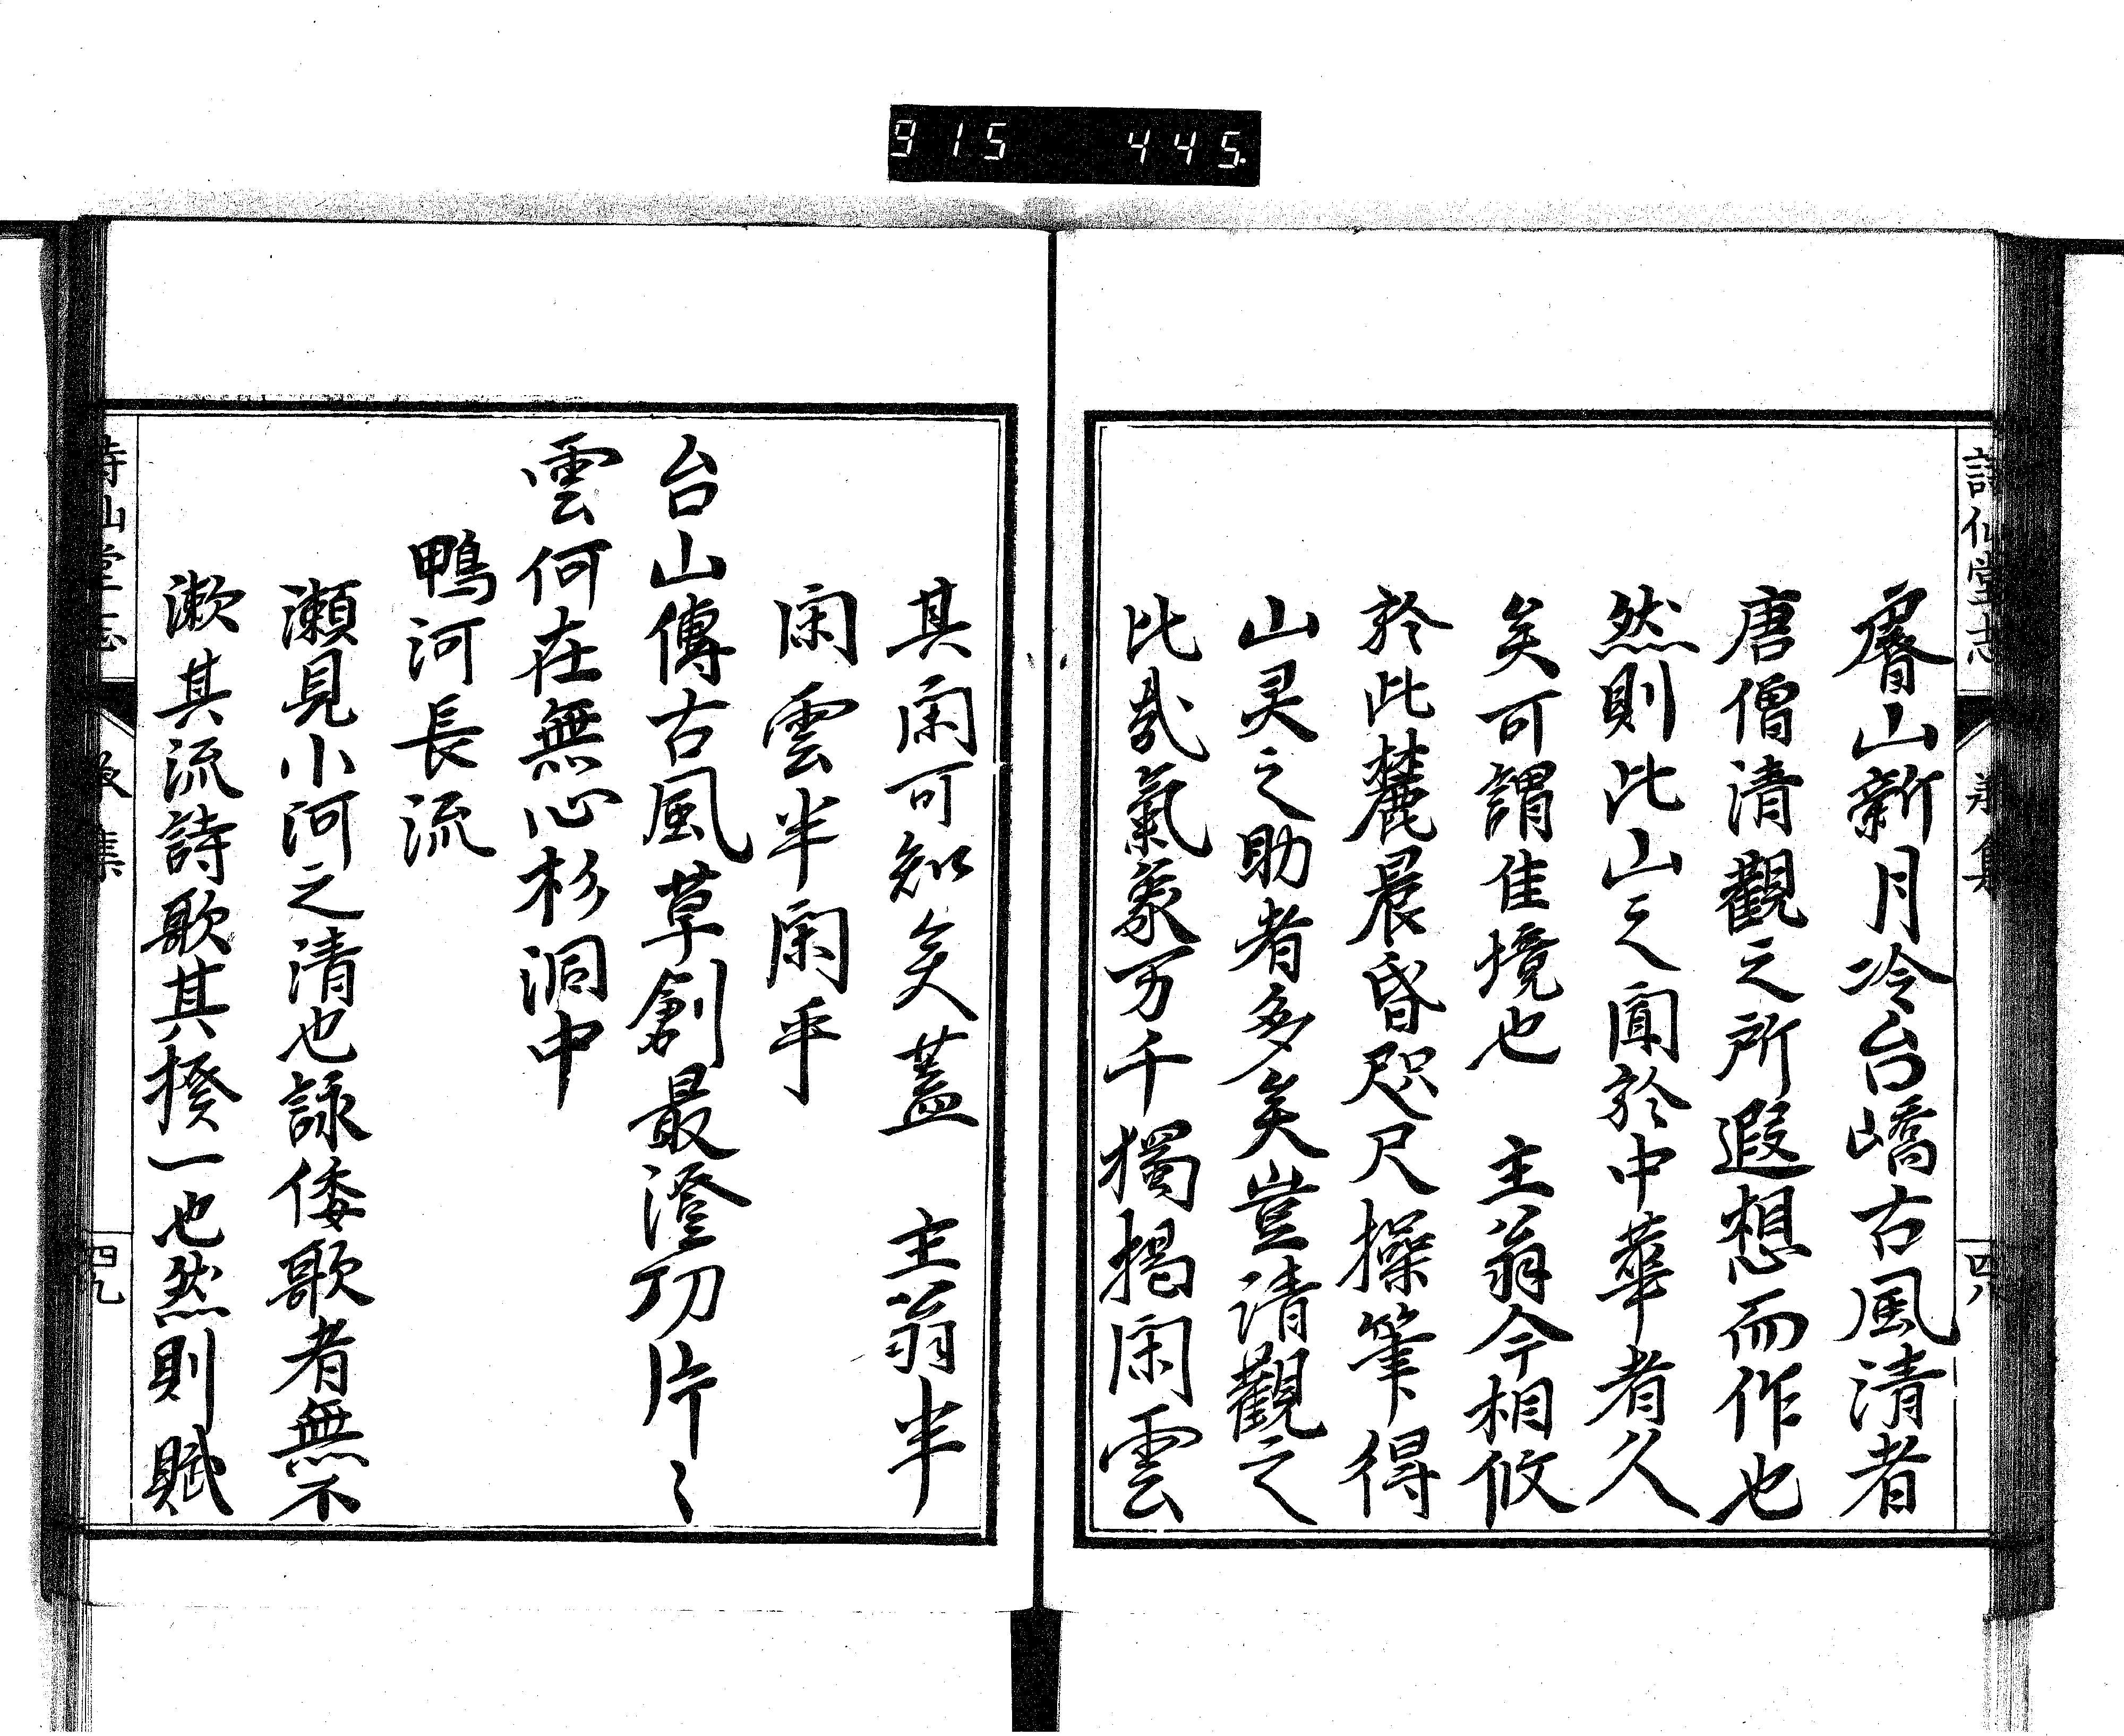 915 445.
詩仙堂志 承集 四八
睿山新月冷台嶠古風清者
唐僧清觀之所遐想而作也
然則此山之聞於中華者久
矣可謂佳境也 主翁今相攸
於此麓晨昏咫尺操筆得
山灵之助者多矣豈清觀之
比哉氣象万千獨揭閑雲
其閑可知矣蓋 主翁半
閑雲半閑乎
台山傳古風草創最澄刀片〻
雲何在無心杉洞中
鴨河長流
瀬見小河之清也詠倭歌者無不
漱其流詩歌其揆一也然則賦
詩仙堂志 集 四九